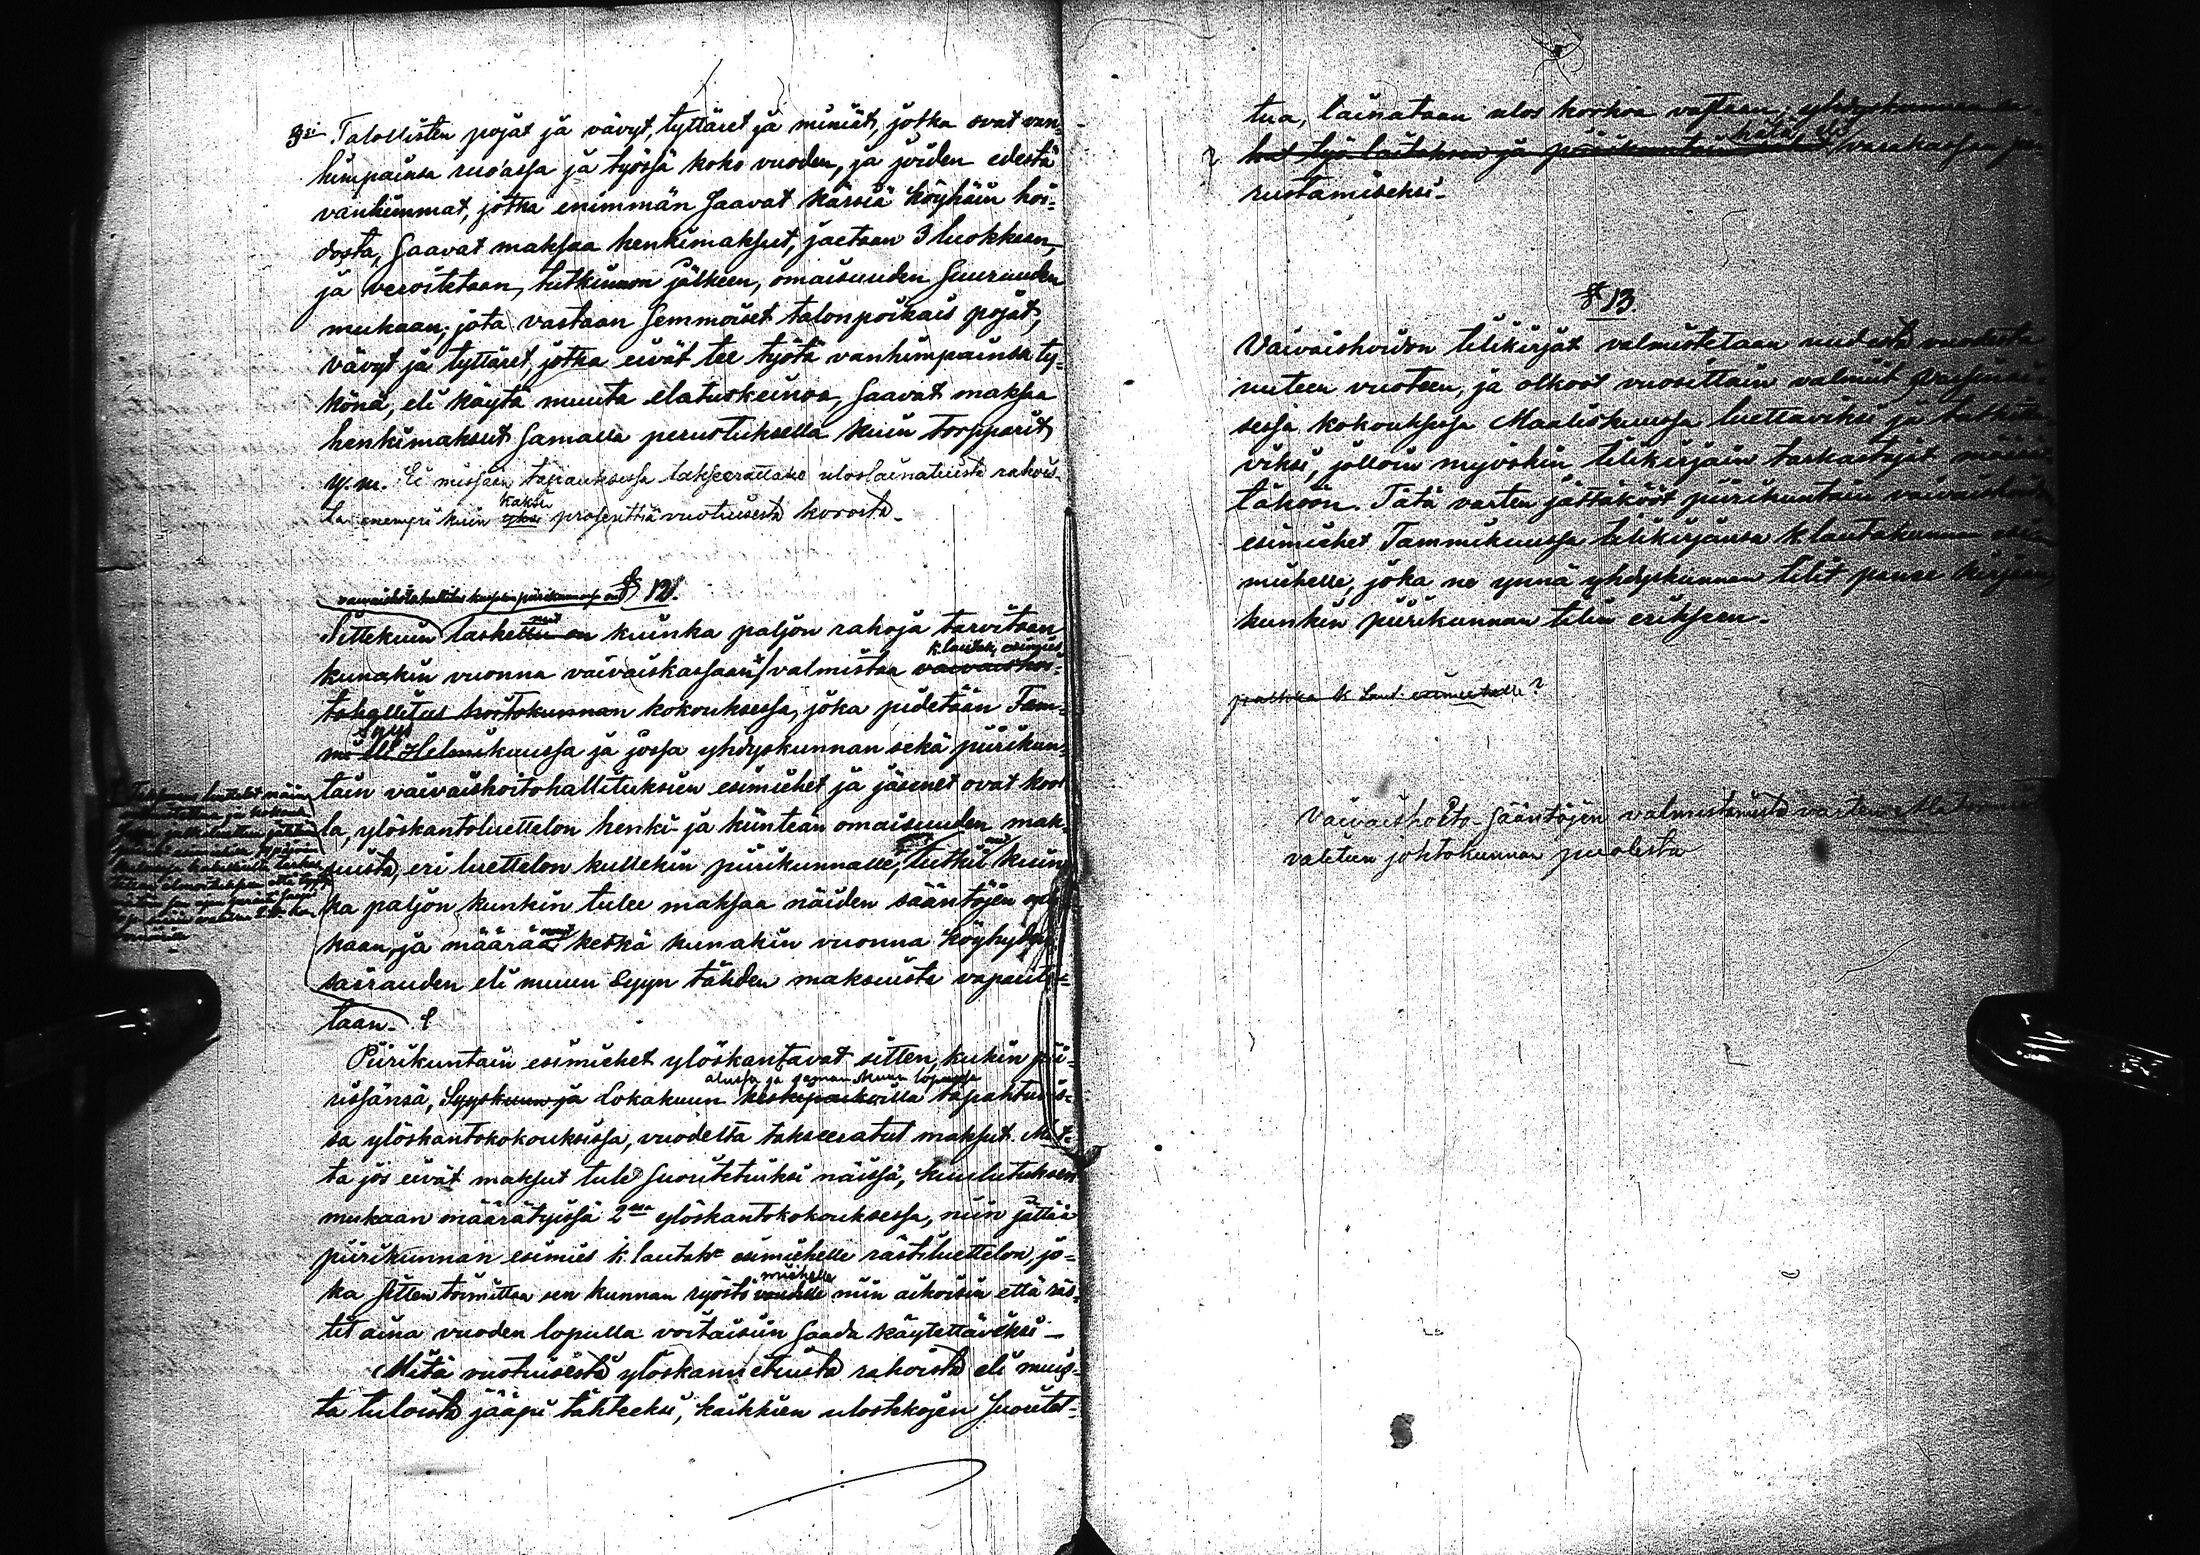 3si Talollisten pojat ja vävyt, tyttäret ja miniät, jotka ovat van-
himpainsa ruo'assa ja työssä koko vuoden, ja joiden edestä
vanhimmat, jotka enimmän saavat kärsiä köyhäin hoi-
dosta, saavat maksaa henkimaksut, jaetaan 3 luokkaan,
ja verotetaan, tutkinnon jälkeen, omaisuuden suuruuden
mukaan; jota vastaan semmoiset talonpoikais pojat,
vävyt ja tyttäret, jotka eivät tee työtä vanhimpainsa ty-
könä, eli käytä muuta elatuskeinoa, saavat maksaa
henkimaksut samalla perustuksella kuin torpparit
y. m. Ei missään tapauksessa takseerattako uloslainatuista rahois-
kaksi
ta enempi kuin yksi prosenttia vuotuisesta korosta.
§ 12.
Sittekuin laskettu on kuinka paljon rahoja tarvitaan
k. lautak. esimies
kunakin vuonna vaivaiskassaan, valmistaa vaivaishoi-
tohallitus hoitokunnan kokouksessa, joka pidetään Tam-
Syys
mi eli Helmikuussa ja jossa yhdyskunnan sekä piirikun-
tain vaivaishoitohallituksien esimiehet ja jäsenet ovat kool-
la, ylöskantoluettelon henki- ja kiinteän omaisuuden mak-
suista, eri luettelon kullekin piirikunnalle, tutkii kuin-
ka paljon kunkin tulee maksaa näiden sääntöjen mu-
kaan, ja määrää ketkä kunakin vuonna köyhyyden,
sairauden eli muun syyn tähden maksuista vapaute-
taan.
Piirikuntain esimiehet ylöskantavat sitten, kukin pii-
alussa ja saman kuun lopussa
rissänsä, Syyskuun ja Lokakuun keskipaikoilla tapahtuvis-
sa ylöskantokokouksissa, vuodelta takseeratut maksut. Mut-
ta jos eivät maksut tule suoritetuiksi näissä, kuulutuksen
mukaan määrätyissä 2ssa ylöskantokokouksessa, niin jättää
piirikunnan esimies k. lautakn esimiehelle rästiluettelon, jo-
miehelle
ka sitten toimittaa sen kunnan ryöstö voudille niin aikoisin että räs-
tit aina vuoden lopulla voitaisiin saada käytettäviksi –
Mitä vuotuisesta ylöskannetuista rahoista eli muis-
ta tuloista jääpi tähteeksi, kaikkien ulostekojen suoritet-
tua, lainataan ulos korkoa vasteen, yhdyskunnan
hätä eli
työ laitoksen ja piirikuntain varakassan pe-
rustamiseksi.
§ 13.
Vaivaishoidon tilikirjät valmistetaan uudesta vuodesta
uuteen vuoteen, ja olkoot vuosittain valmiit
sessa kokouksessa Maaliskuussa luettaviksi ja tutkitta-
viksi, jolloin myöskin tilikirjain tarkastajat määrä-
täköön. Tätä varten jättäkööt piirikuntain vaivaishoito
esimiehet Tammikuussa tilikirjänsä k. lautakunnan esi-
miehelle, joka ne ynnä yhdyskunnan tilit panee kirjaan,
kunkin piirikunnan tilin erikseen.
k. laut. esimiehelle?
Vaivaishoito-sääntöjen valmistamista varten
valitun johtokunnan puolesta